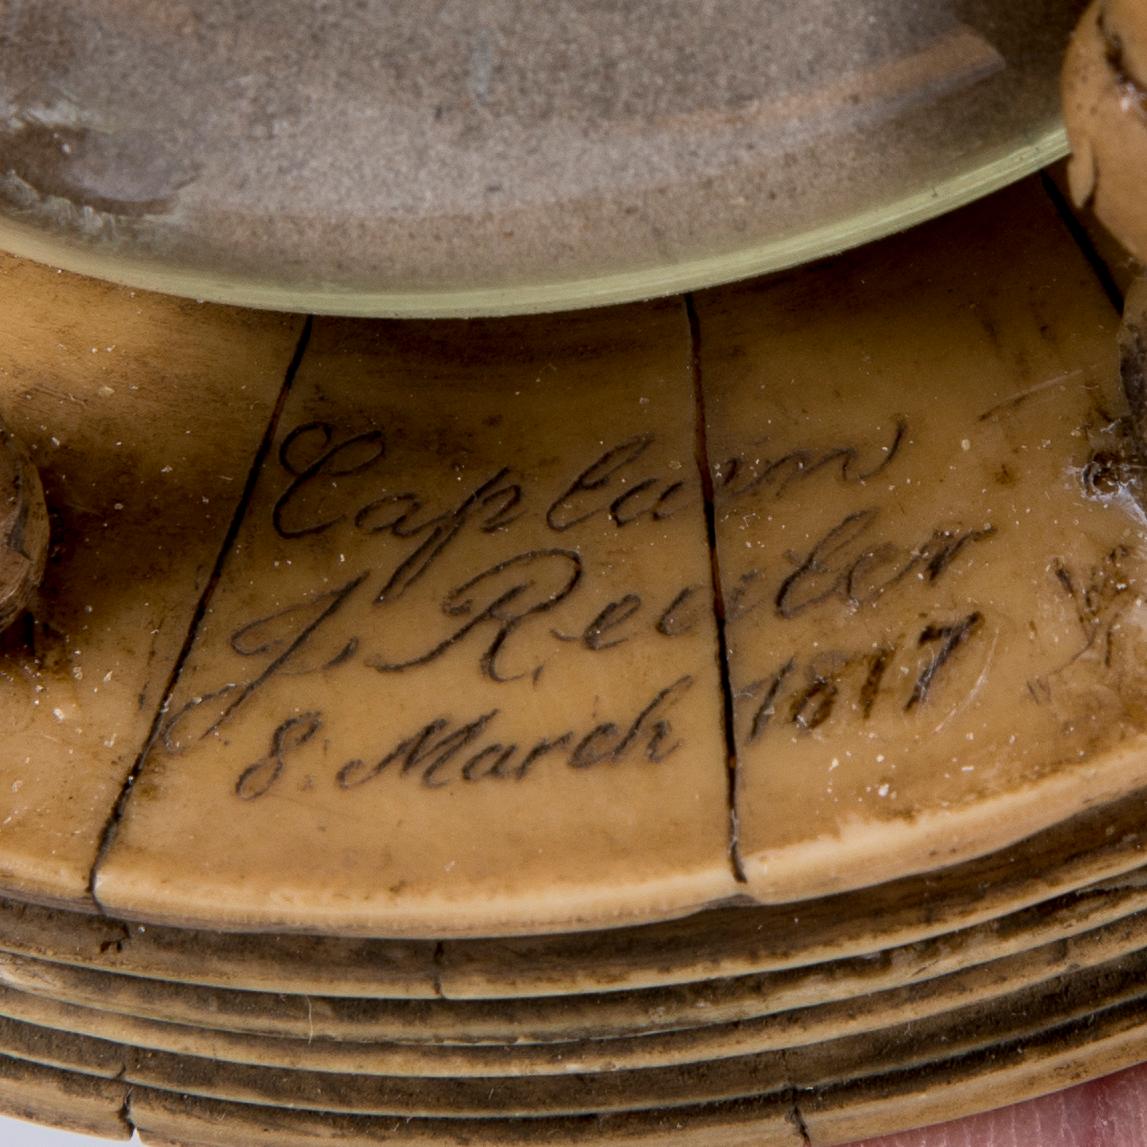 Captain
J. Reuter
8. March 1817